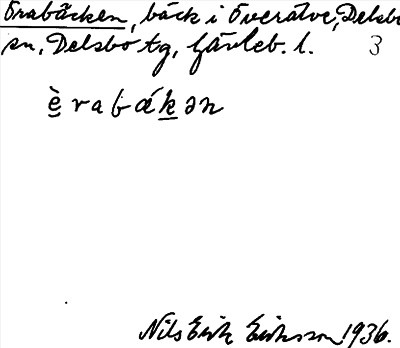 Örabäcken, bäck i Överälve, Delsbo
sn, Delsbo tg, Gävleb. l. 3
è̱ r a b ǽ ḵ ə n
Nils Erik Eriksson 1936.